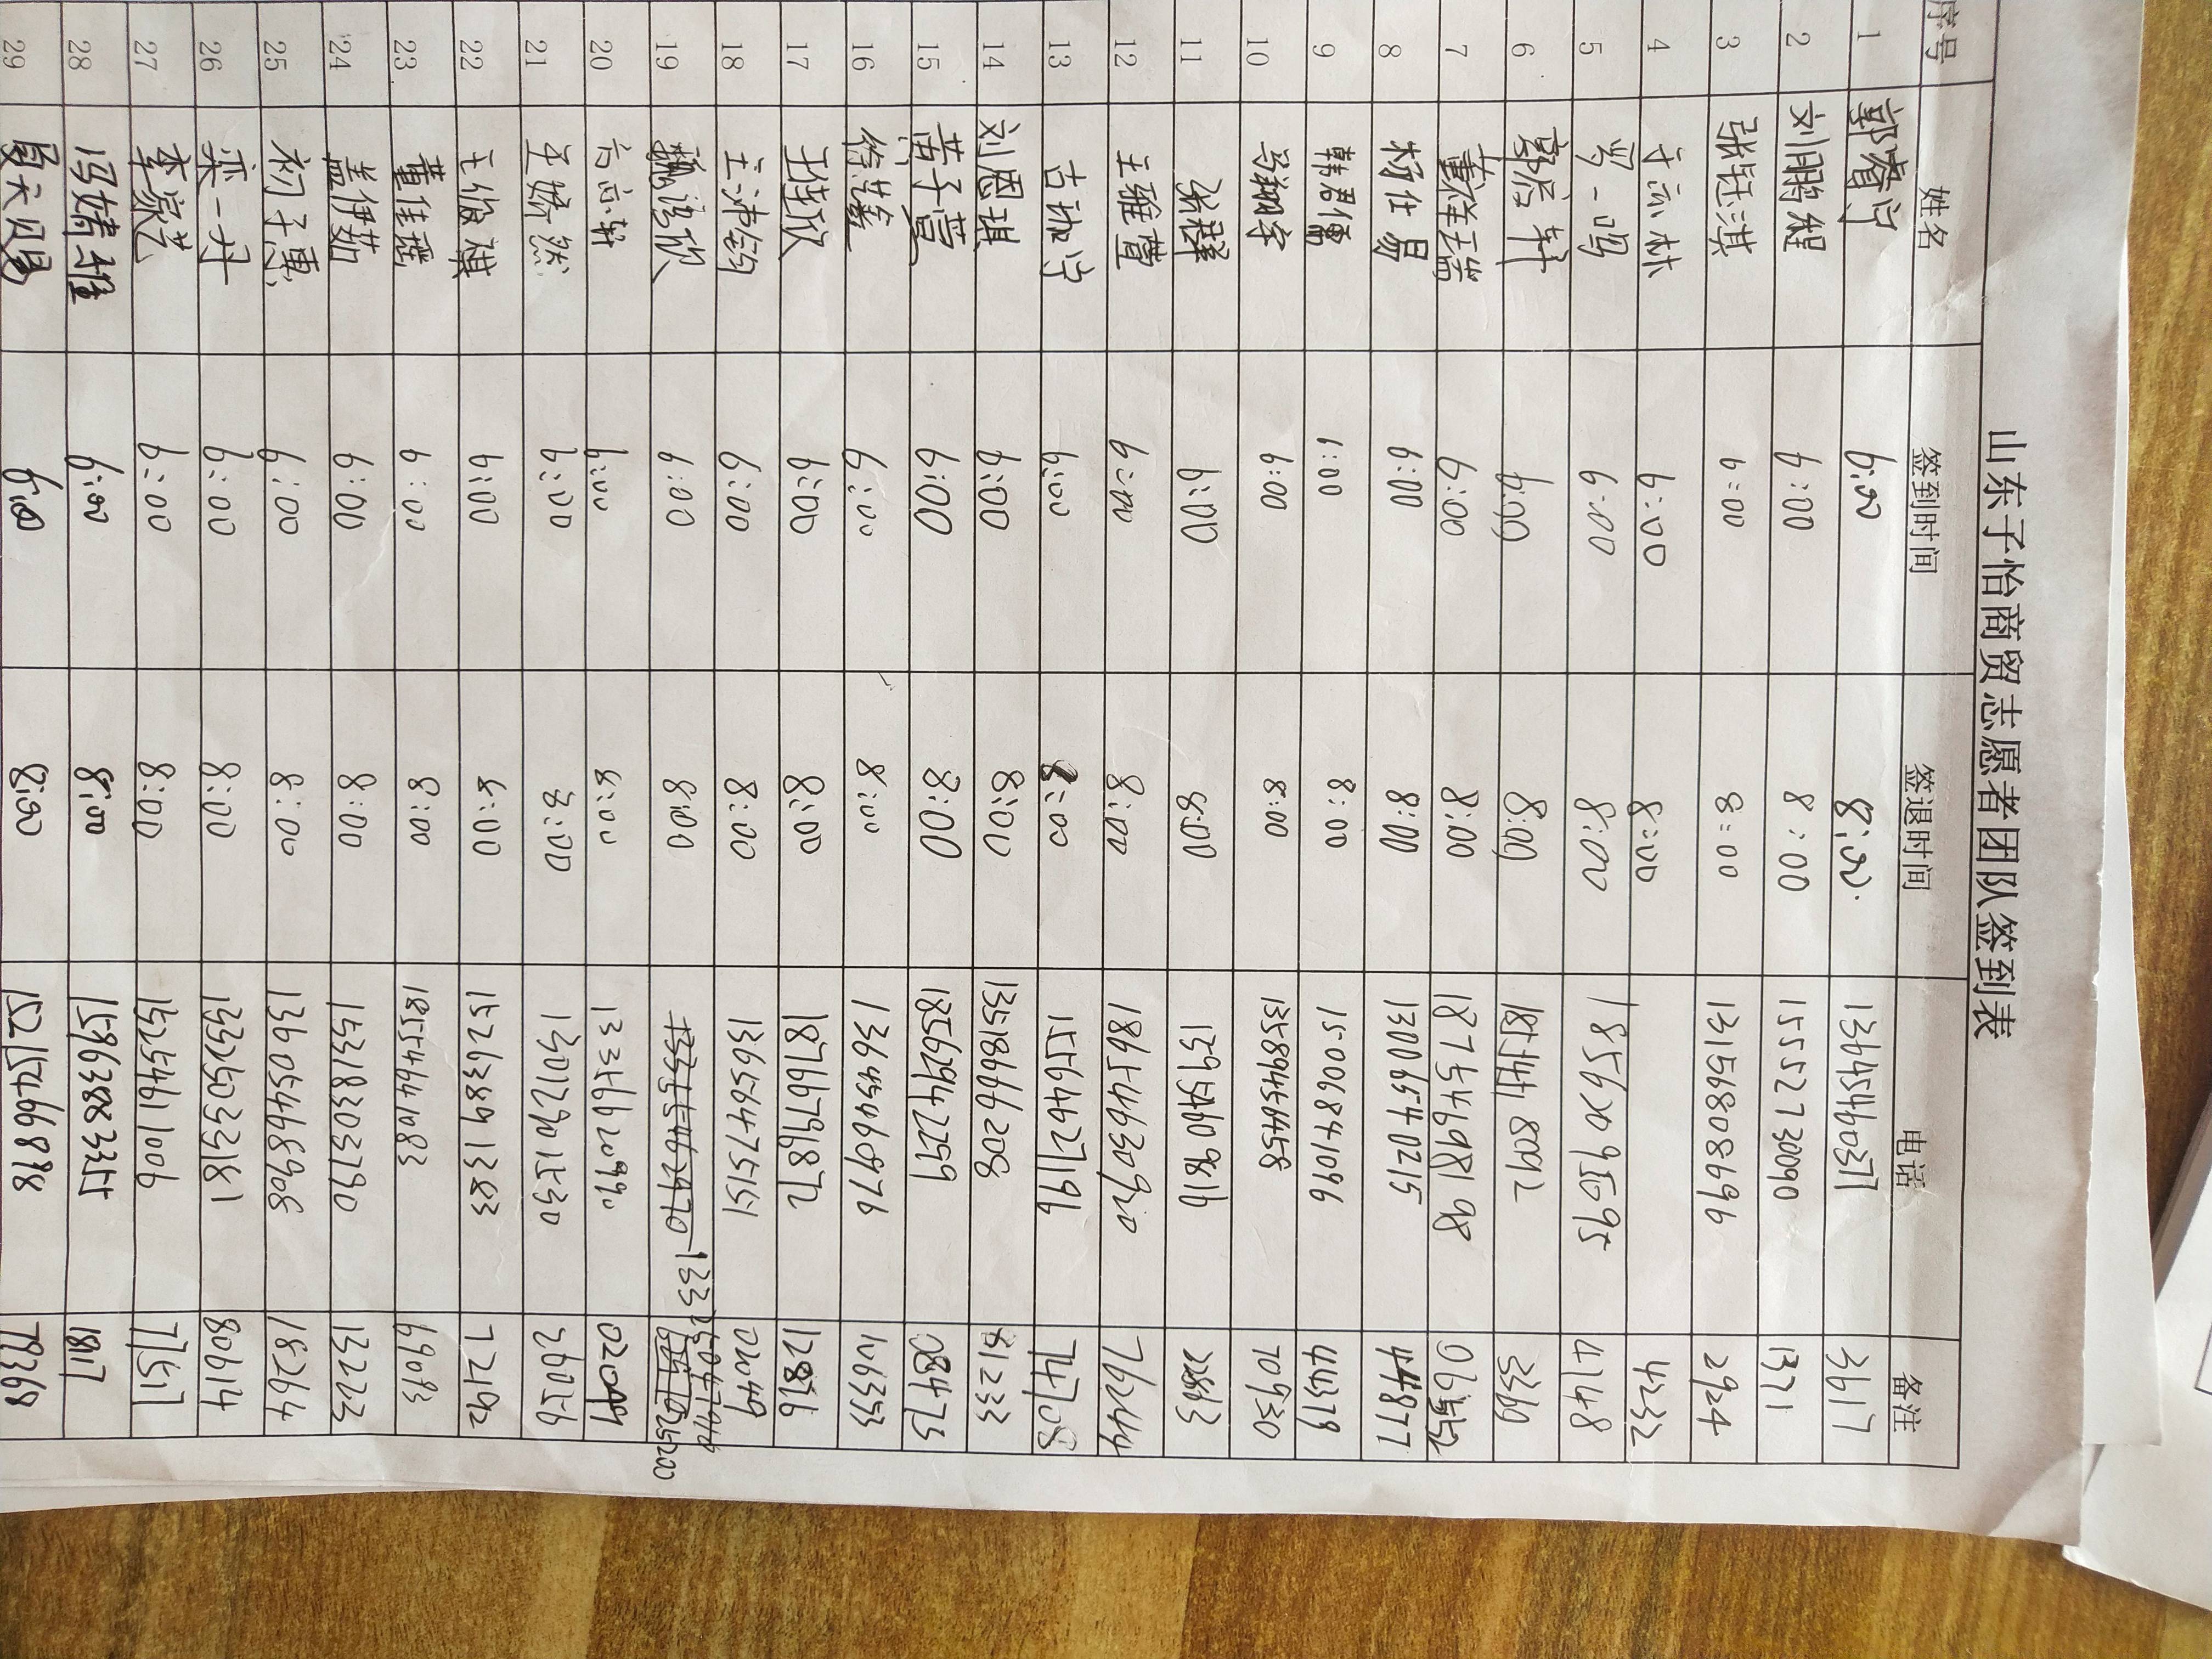 山东子怡商贸志愿者团队签到表
序号 姓名 签到时间 签退时间 电话 备注
1 郭睿宁 6:00 8:00 13645460371 3617
2 刘鹏程 6:00 8:00 15552730090 1371
3 张钰淇 6:00 8:00 13156808696 2924
4 于云林 6:00 8:00 4232
5 一鸣 6:00 8:00 4148
6 郭启轩 6:00 8:00 3360
7 6:00 8:00 18754698198
8 杨仕易 6:00 8:00 13006540215
9 韩君儒 6:00 8:00 15006841096 44379
10 翔宇 6:00 8:00 13589456458 70930
11 6:00 8:00 13954609816
12 王雅萱 6:00 8:00 18654630920 76244
13 6:00 8:00 15564627196 74708
14 刘恩琪 6:00 8:00 13518666208 81233
15 黄子萱 6:00 8:00 18562942259 08473
16 6:00 8:00 13645460976 106353
17 6:00 8:00 18766791872 12816
18 王沛钧 6:00 8:00 13656475151
19 6:00 8:00
20 6:00 8:00
21 王娇然 6:00 8:00 15012901530 260256
22 王俊祺 6:00 8:00 15263891383 72192
23 董佳瑶 6:00 8:00 18554641083 69083
24 盖伊茹 6:00 8:00 15318303790 132223
25 初子惠 6:00 8:00 13605468908 18264
26 栾一丹 6:00 8:00 13325033181 80614
27 李宸艺 6:00 8:00 71517
28 冯婧雅 6:00 8:00 15963883355 1817
29 夏天赐 6:00 8:00 15215466898 79369